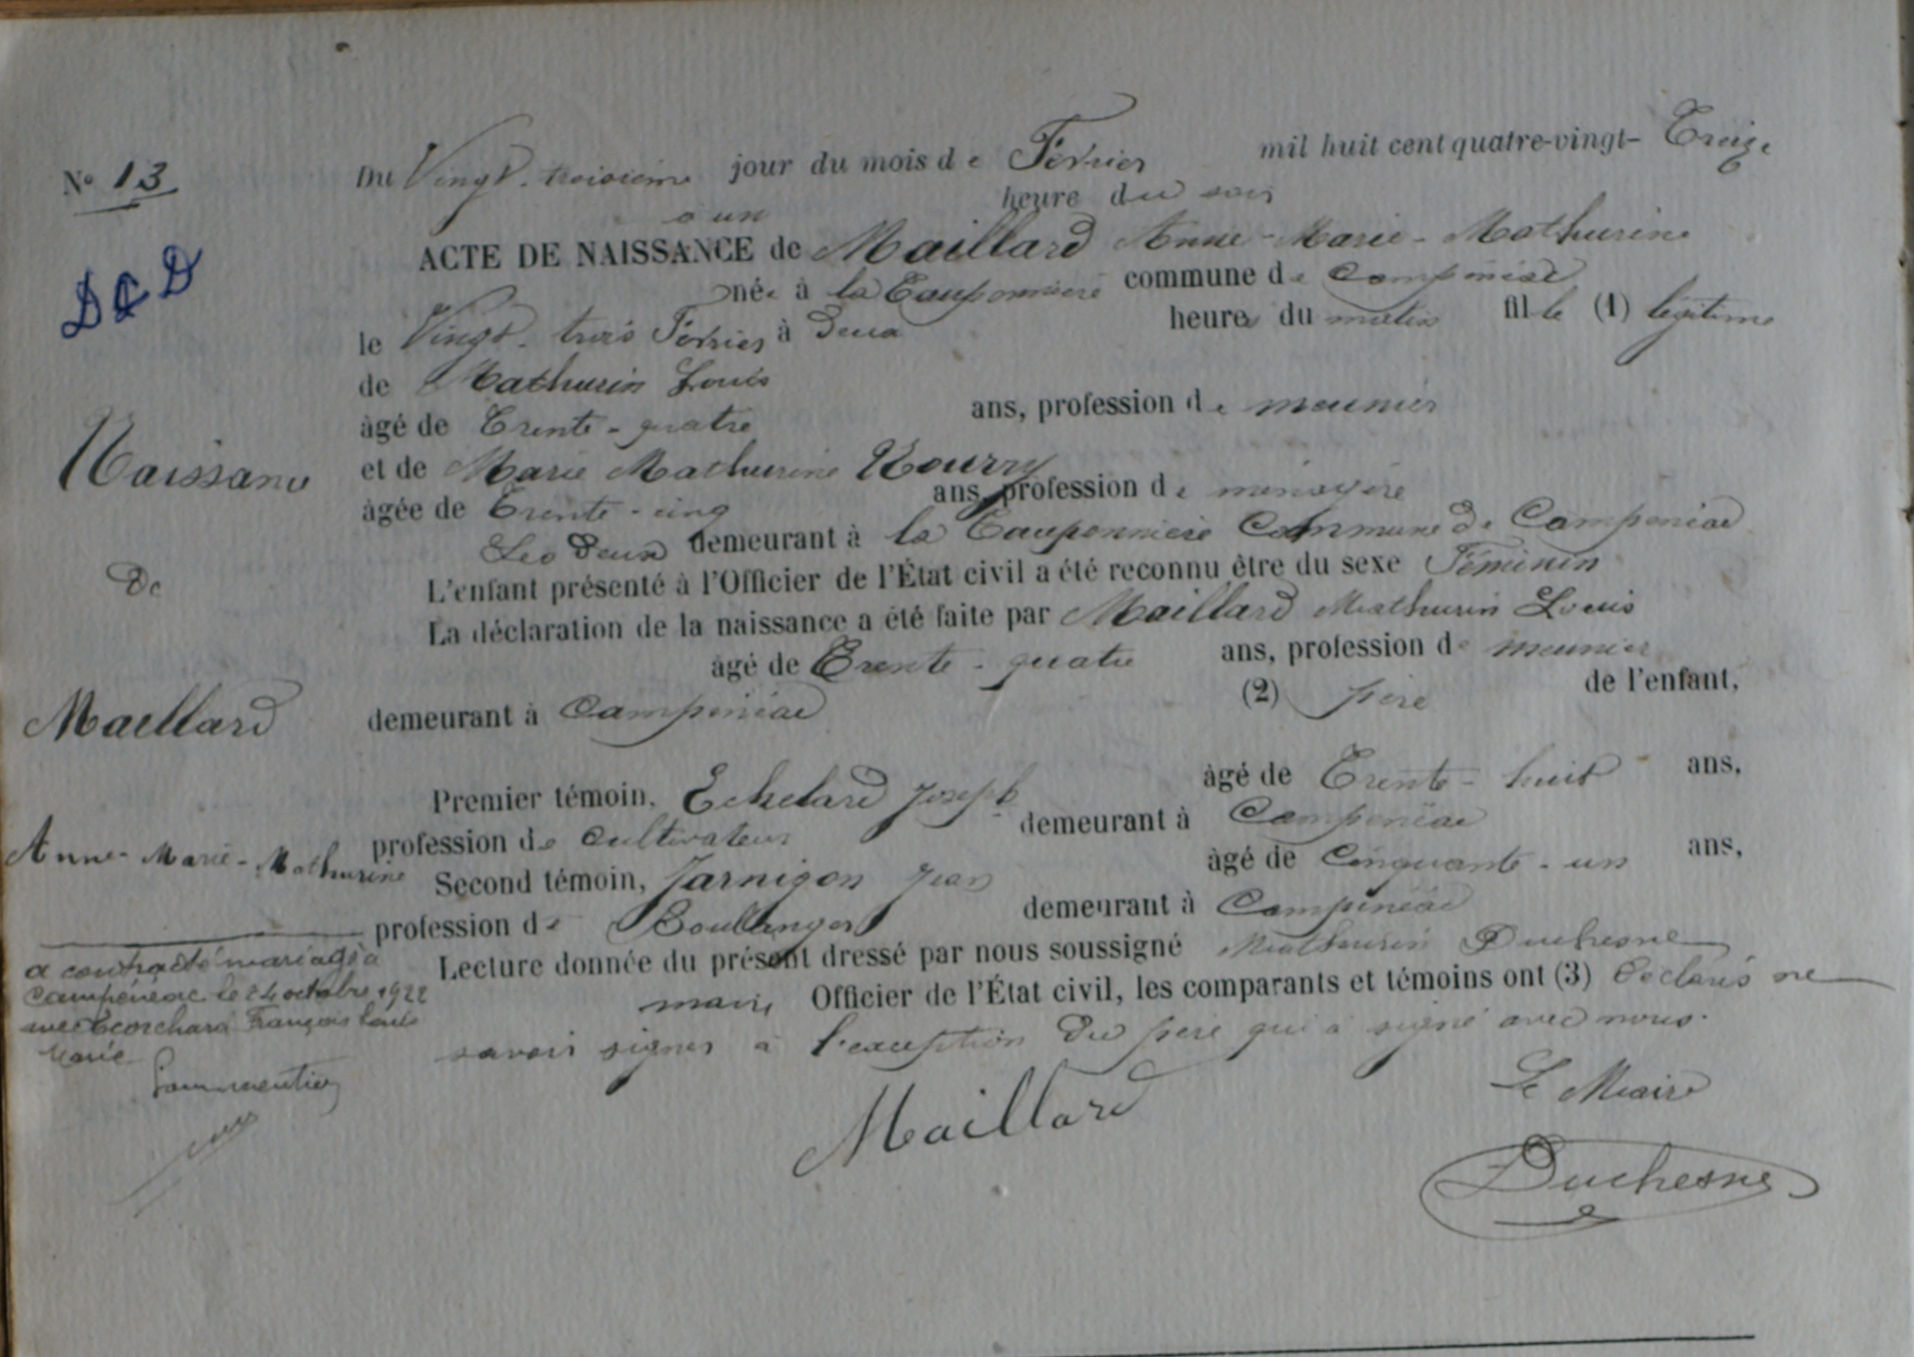 N° 13
DCD
Naissance
De
Maillard
Anne-Marie-Mathurine
a contracté mariage à
Campénéac le 24 octobre 1922
avec Ecorchard François Louis
Marie
Du Vingt-troisième jour du mois de Février mil huit cent quatre-vingt-Treize
à un heure du soir
ACTE DE NAISSANCE de Maillard Anne-Marie-Mathurine
née à la Tauponnière commune de Campénéac
le Vingt-trois Février à Deux heures du matin fille (1) légitime
de Mathurin Louis
âgé de Trente-quatre ans, profession de meunier
et de Marie Mathurine Nourry
âgée de Trente-cinq ans, profession de ménagère
Les deux demeurant à la Tauponnière Commune de Campénéac
L'enfant présenté à l'Officier de l'État civil a été reconnu être du sexe Féminin
La déclaration de la naissance a été faite par Maillard Mathurin Louis
âgé de Trente-quatre ans, profession de meunier
demeurant à Campénéac (2) père de l'enfant,
Premier témoin, Echelard Joseph âgé de Trente-huit ans,
profession de cultivateur demeurant à Campénéac
Second témoin, Jarnigon Jean âgé de Cinquante-un ans,
profession de Boulanger demeurant à Campénéac
Lecture donnée du présent dressé par nous soussigné Mathurin Duchesne
maire Officier de l'État civil, les comparants et témoins ont (3) déclaré ne
savoir signer à l'exception du père qui a signé avec nous.
Maillard
Le Maire
Duchesne